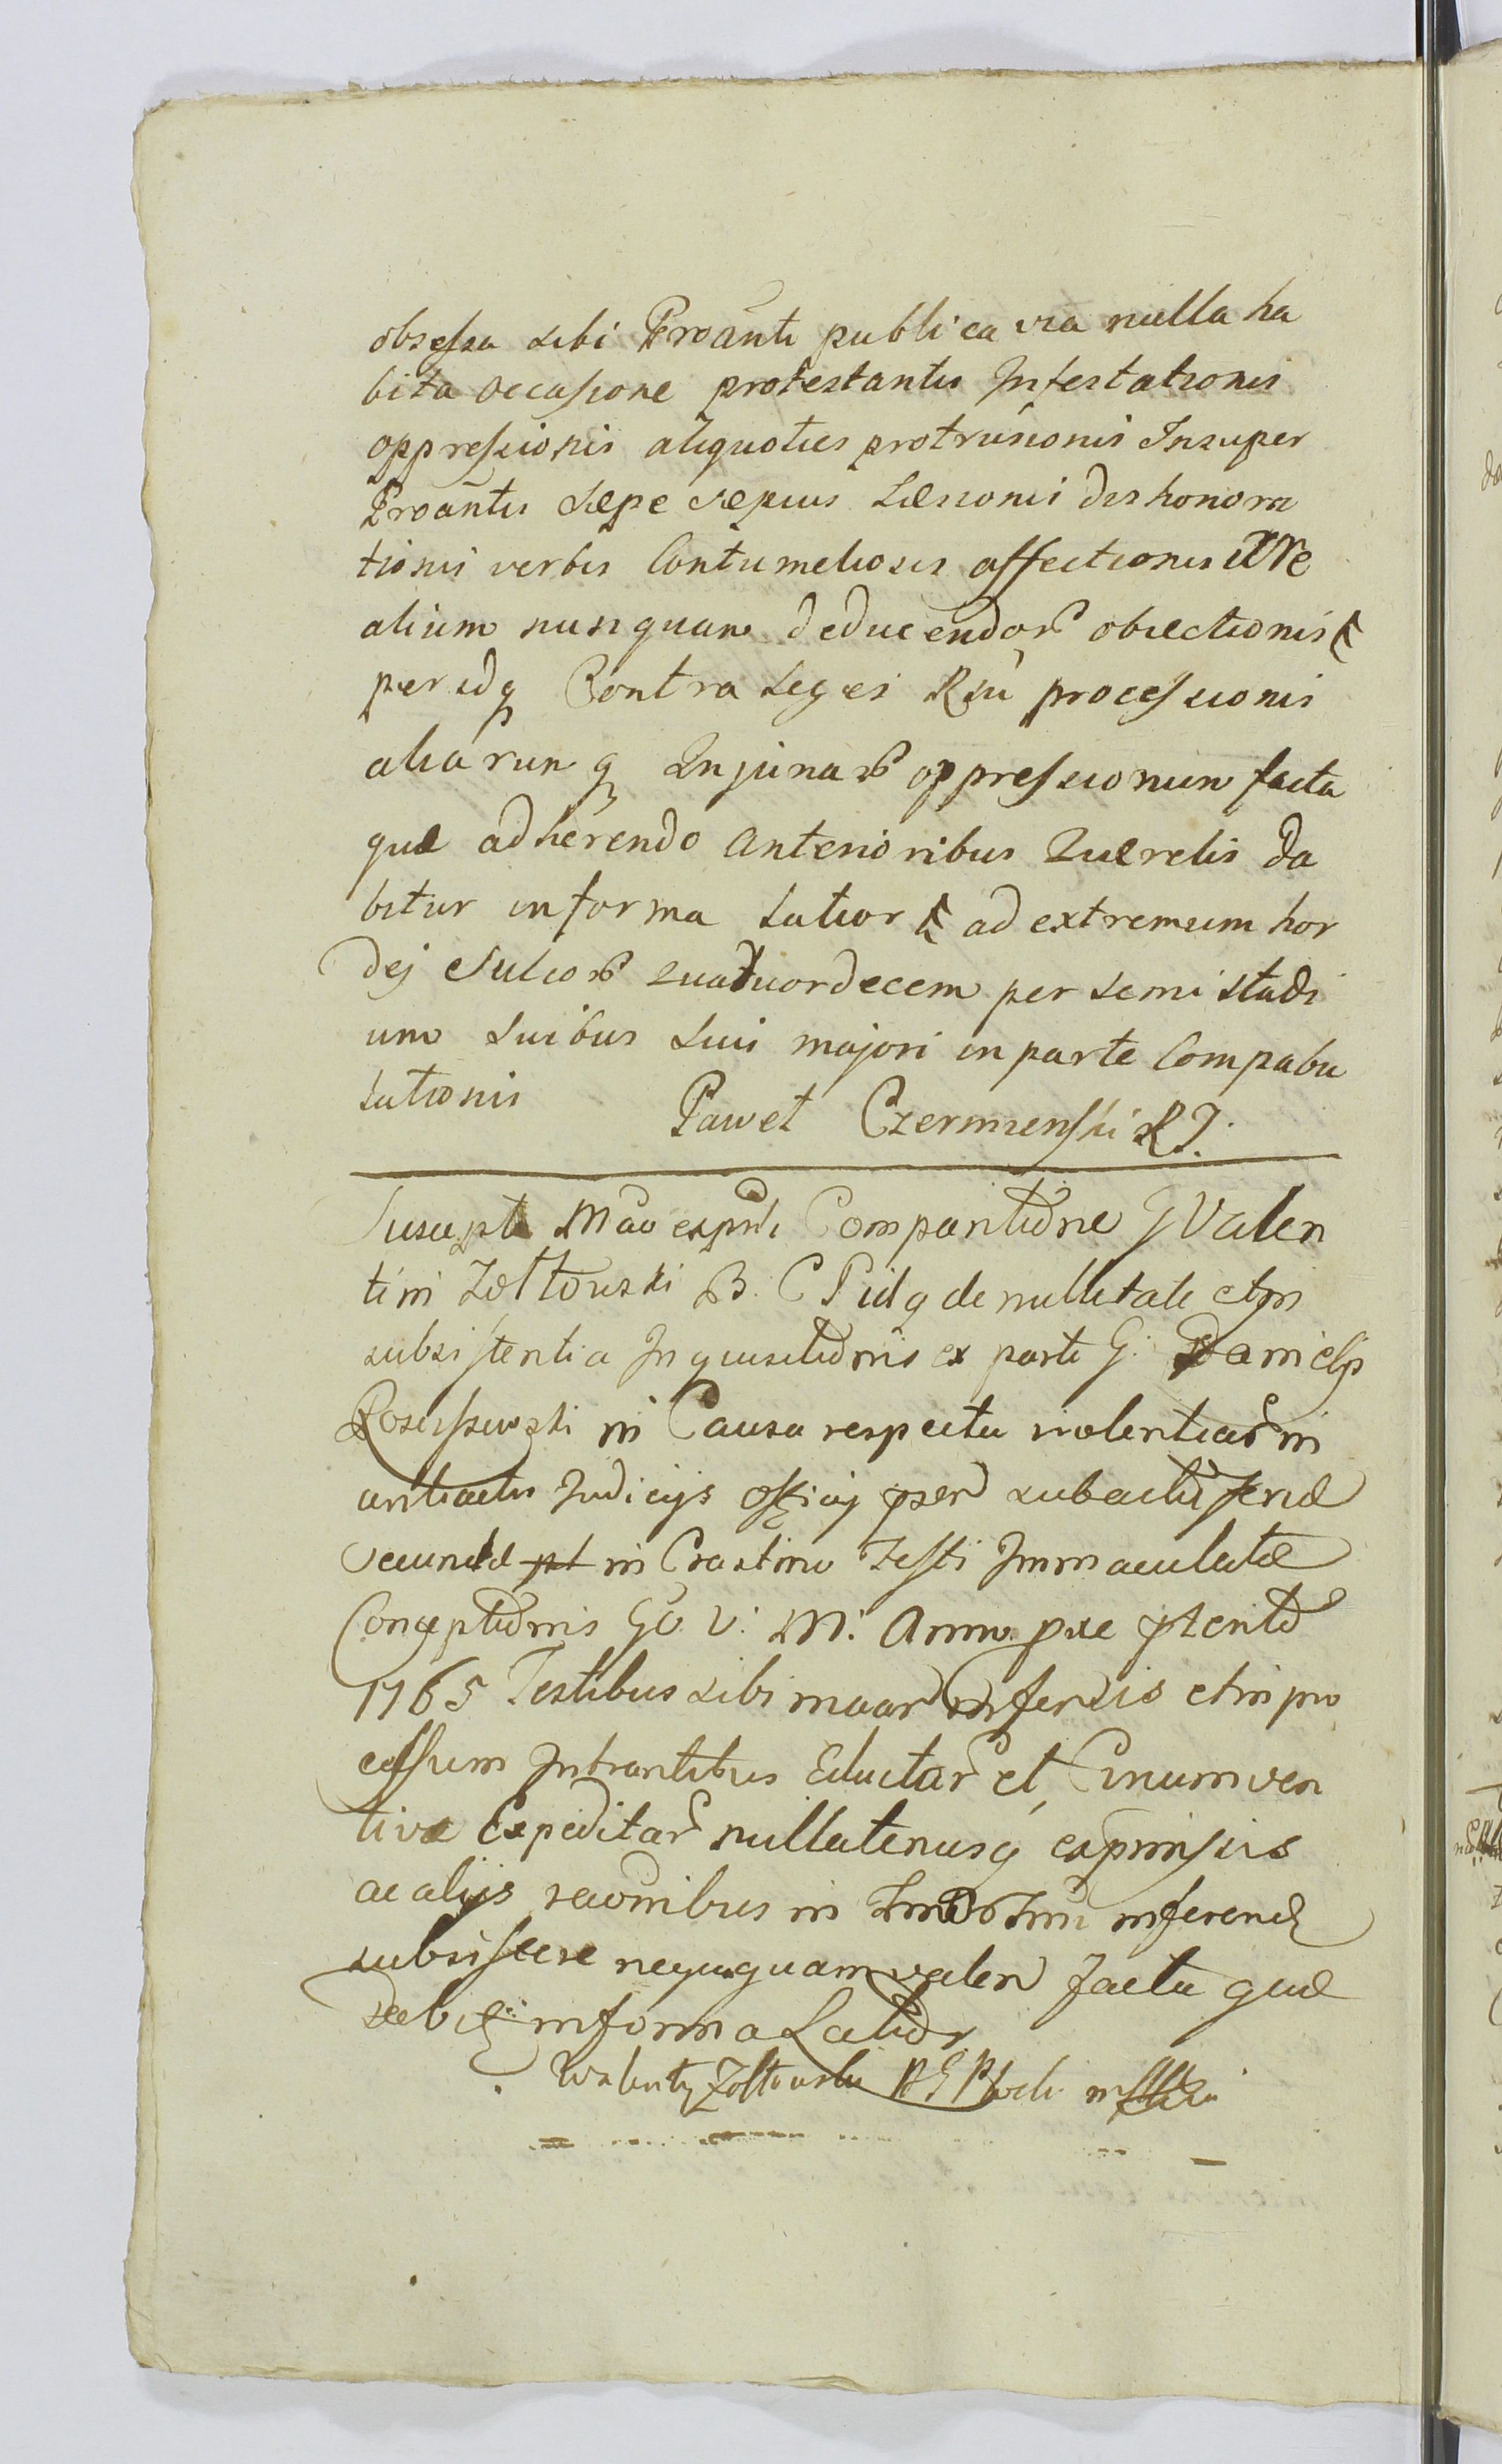 obsessa sibi Proãnti publica via nulla ha
bita occasione protestantis Infestationis
oppressionis aliquoties protrusionis Insuper
Proãntis sæpe sæpius Læsionis dishonora
tionis verbis Contumeliosis affectionis
alium nunquam deducendor obiectionis
per idq Contra Leges procession​is
aliarunq Injuriar oppressionum facta
quæ adherendo anterioribus Quærelis da
bitur in forma Latior ad extremum hor
dej Sulcor quatuordecem per semi stadi
um suibus suis majori in parte Compabu
lationis
Paweł Czermienski
Suscepta Compantione G Valen
tini Zołtowski idq de nullitate et in
subsistentia Inquisitionis ex parte G: Danielis
in Causa respectu violentiar in
antiactis Judicijs Officij subactu feriæ
secundæ in Crastino Festi Immaculatæ
Conceptionis V: M: Anno præterito
1765 Testibus sibi infensis et in pro
cessum Intrantibus Eductar et Circumven
tive Expeditar nullatenusq expressis
ac alijs raconibus in inferend
subsistere nequaquam valen facta quæ
dabit in forma Latior
Walenty Zołtowski